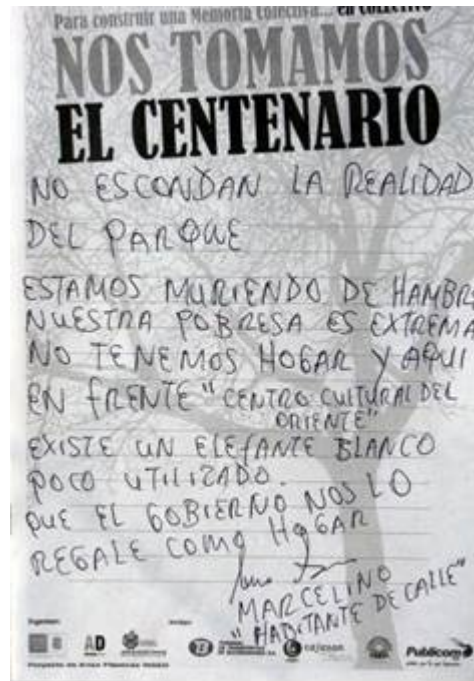 Para construir una Memoria Colectiva... en COLECTIVO
NOS TOMAMOS
EL CENTENARIO
NO ESCONDAN LA REALIDAD
DEL PARQUE
ESTAMOS MURIENDO DE HAMBRE
NUESTRA POBRESA ES EXTREMA
NO TENEMOS HOGAR Y AQUI
EN FRENTE "CENTRO CULTURAL DEL
ORIENTE"
EXISTE UN ELEFANTE BLANCO
POCO UTILIZADO.
QUE EL GOBIERNO NOS LO
REGALE COMO HOGAR
MARCELINO
"HABITANTE DE CALLE"
AD
cajasan
Publicom